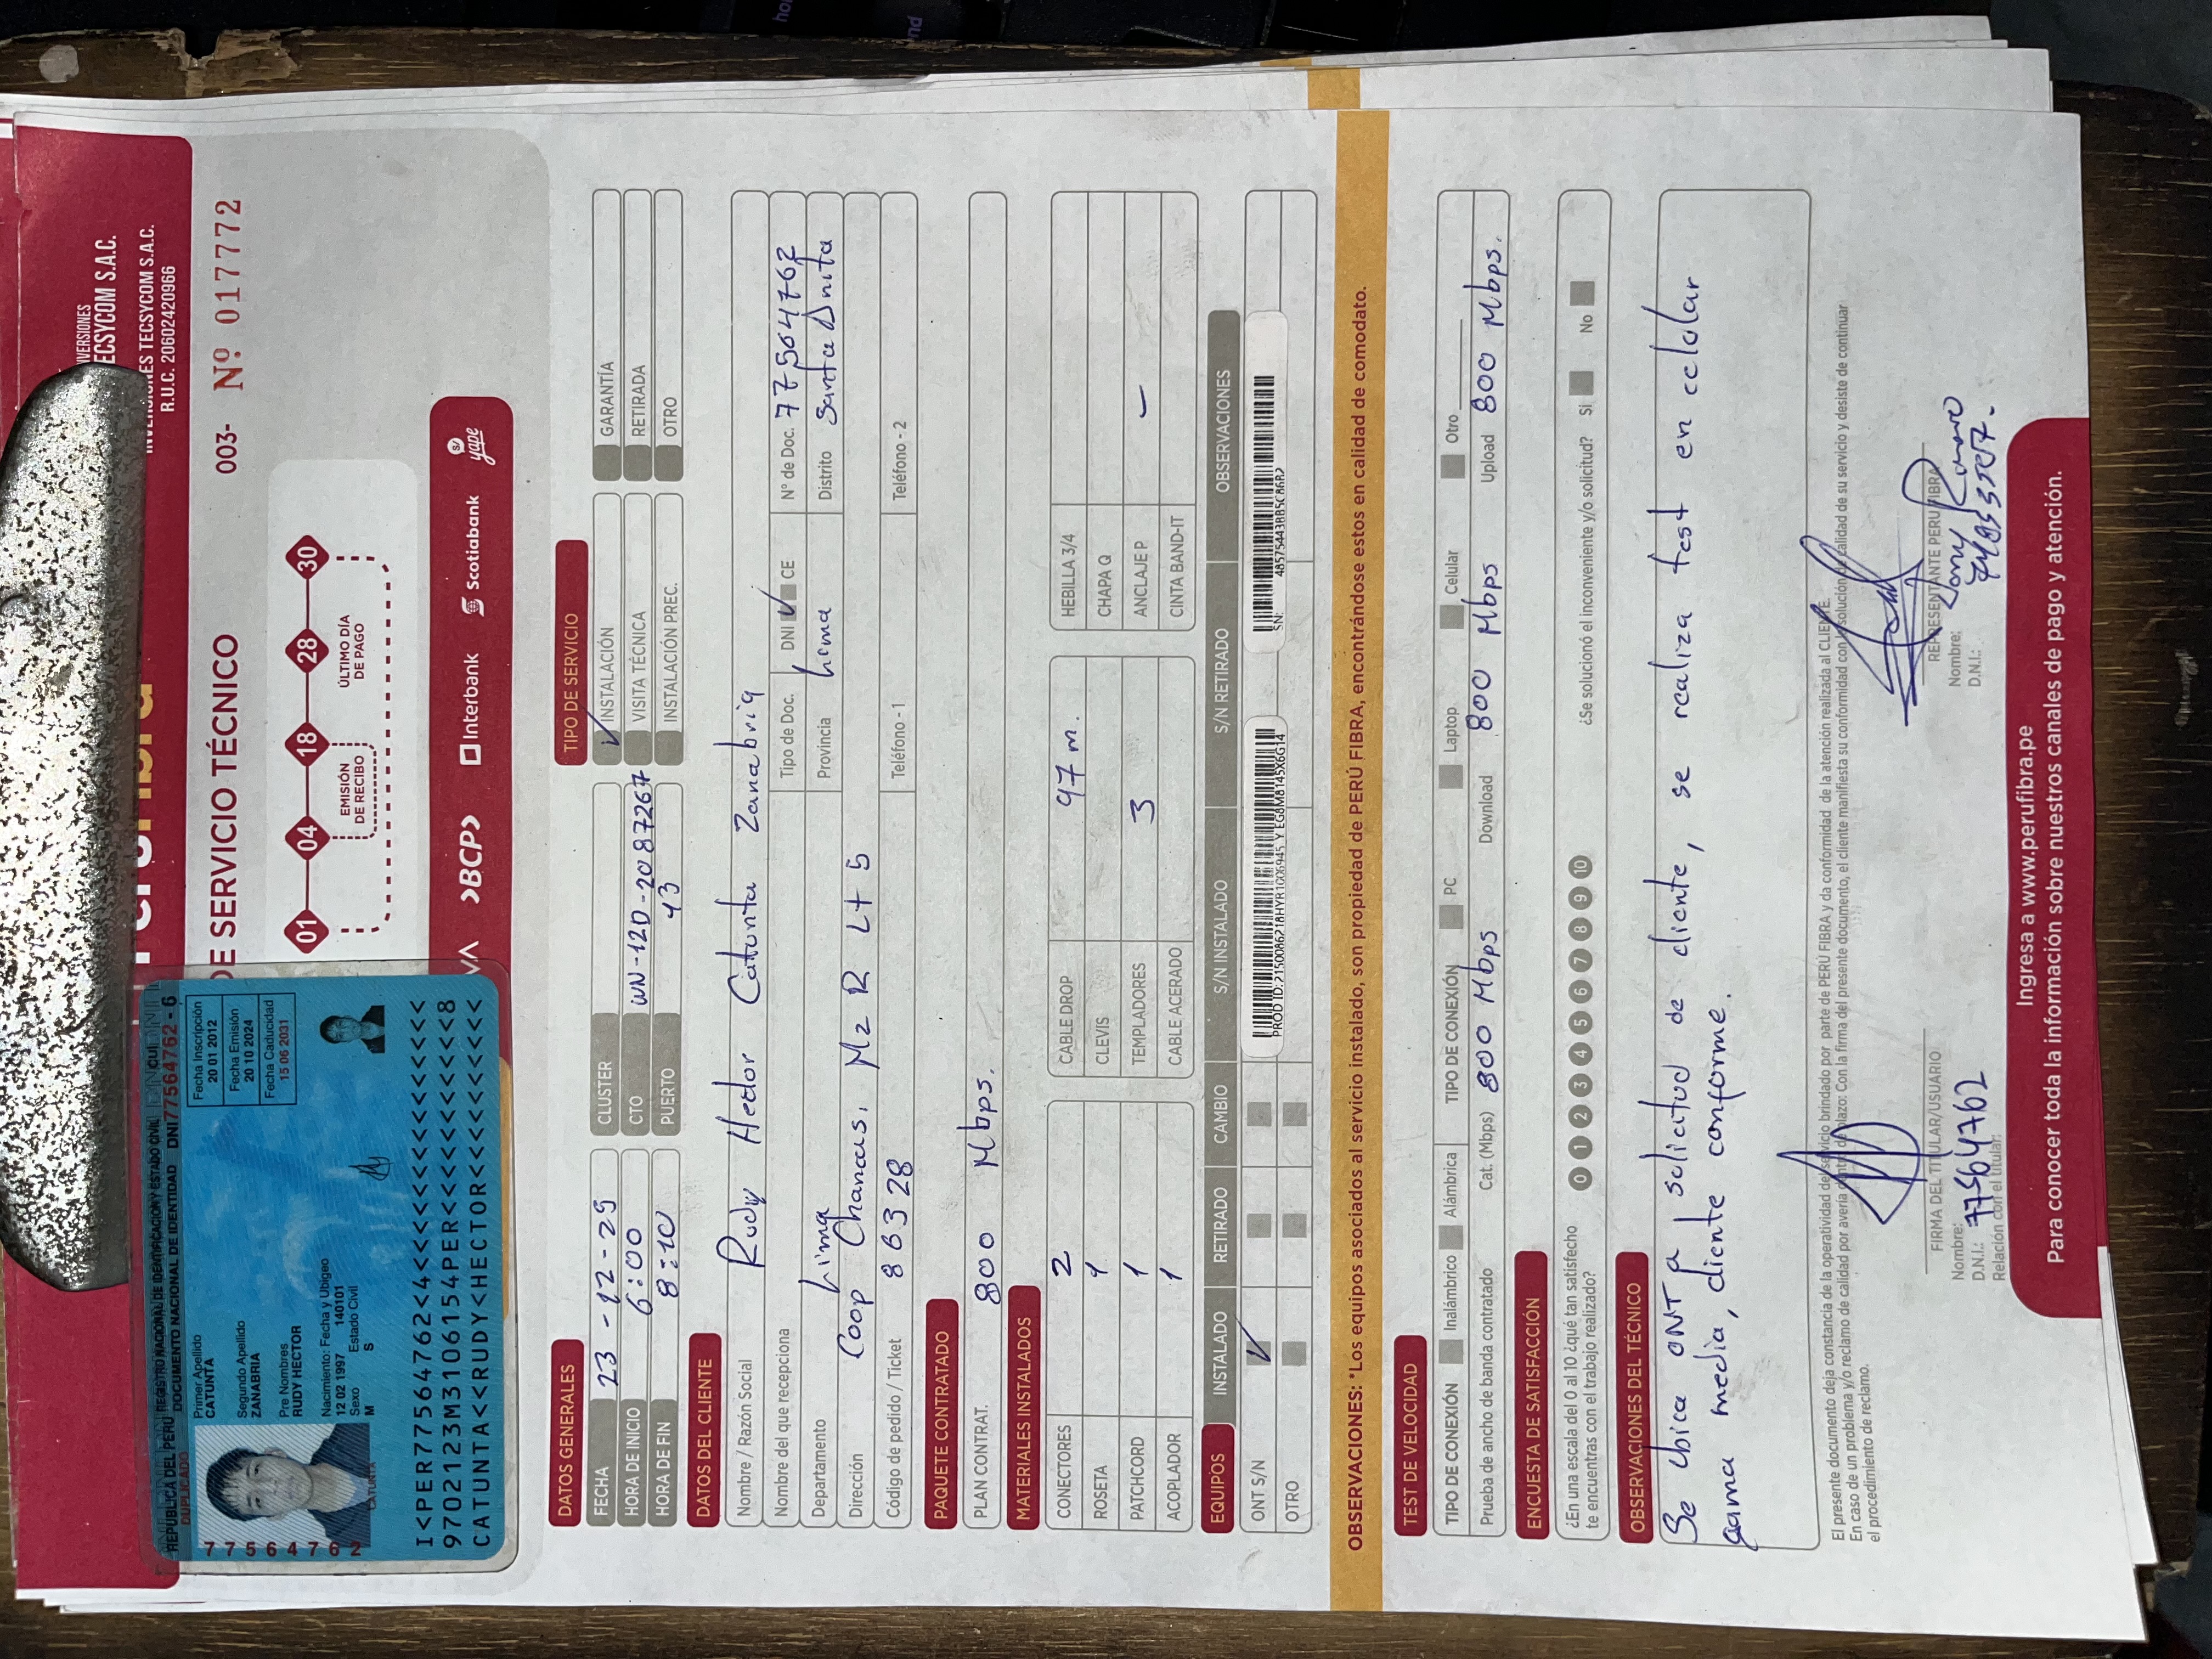 VERSIONES
ECSYCOM S.A.C.
INVERSIONES TECSYCOM S.A.C.
R.U.C. 20602420966
DE SERVICIO TÉCNICO
003- Nº 017772
01 04 18 28 30
EMISIÓN DE RECIBO
ÚLTIMO DÍA DE PAGO
>BCP> Interbank Scotiabank yape
REPÚBLICA DEL PERÚ REGISTRO NACIONAL DE IDENTIFICACIÓN Y ESTADO CIVIL
DUPLICADO
DOCUMENTO NACIONAL DE IDENTIDAD DNI77564762 - 6
Primer Apellido
CATUNTA
Segundo Apellido
ZANABRIA
Pre Nombres
RUDY HECTOR
Nacimiento: Fecha y Ubigeo
12 02 1997 140101
Sexo Estado Civil
M S
Fecha Inscripción
20 01 2012
Fecha Emisión
20 10 2024
Fecha Caducidad
15 06 2031
CATUNTA
77564762
I<PER77564762<4<<<<<<<<<<<<<<<
9702123M3106154PER<<<<<<<<<<<8
CATUNTA<<RUDY<HECTOR<<<<<<<<<<
DATOS GENERALES
TIPO DE SERVICIO
FECHA 23 - 12 - 25 CLUSTER INSTALACIÓN GARANTÍA
HORA DE INICIO 6:00 CTO WN-12D-2087267 VISITA TÉCNICA RETIRADA
HORA DE FIN 8:10 PUERTO 43 INSTALACIÓN PREC. OTRO
DATOS DEL CLIENTE
Nombre / Razón Social Rudy Hector Catunta Zanabria
Nombre del que recepciona Tipo de Doc. DNI CE N° de Doc. 77564762
Departamento Lima Provincia Lima Distrito Santa Anita
Dirección Coop Chancas, Mz R Lt 5
Código de pedido / Ticket 866328 Teléfono - 1 Teléfono - 2
PAQUETE CONTRATADO
PLAN CONTRAT. 800 Mbps.
MATERIALES INSTALADOS
CONECTORES 2 CABLE DROP 97 m. HEBILLA 3/4
ROSETA 1 CLEVIS CHAPA Q
PATCHCORD 1 TEMPLADORES 3 ANCLAJE P –
ACOPLADOR 1 CABLE ACERADO CINTA BAND-IT
EQUIPOS INSTALADO RETIRADO CAMBIO S/N INSTALADO S/N RETIRADO OBSERVACIONES
ONT S/N
PROD ID: 2150086218HYR1006945 Y EG8M8145X6G14
SN: 48575443BB5CB6B2
OTRO
OBSERVACIONES: *Los equipos asociados al servicio instalado, son propiedad de PERÚ FIBRA, encontrándose estos en calidad de comodato.
TEST DE VELOCIDAD
TIPO DE CONEXIÓN Inalámbrico Alámbrica TIPO DE CONEXIÓN PC Laptop Celular Otro
Prueba de ancho de banda contratado Cat. (Mbps) 800 Mbps Download 800 Mbps Upload 800 Mbps.
ENCUESTA DE SATISFACCIÓN
¿En una escala del 0 al 10 ¿qué tan satisfecho
te encuentras con el trabajo realizado? 0 1 2 3 4 5 6 7 8 9 10 ¿Se solucionó el inconveniente y/o solicitud? Si No
OBSERVACIONES DEL TÉCNICO
Se ubica ONT a solicitud de cliente, se realiza test en celular
gama media, cliente conforme.
El presente documento deja constancia de la operatividad del servicio brindado por parte de PERÚ FIBRA y da conformidad de la atención realizada al CLIENTE.
En caso de un problema y/o reclamo de calidad por avería dentro de plazo: Con la firma del presente documento, el cliente manifiesta su conformidad con la solución de calidad de su servicio y desiste de continuar
el procedimiento de reclamo.
FIRMA DEL TITULAR/USUARIO
Nombre:
D.N.I.: 77564762
Relación con el titular:
REPRESENTANTE PERU FIBRA
Nombre:
D.N.I.:
Ingresa a www.perufibra.pe
Para conocer toda la información sobre nuestros canales de pago y atención.